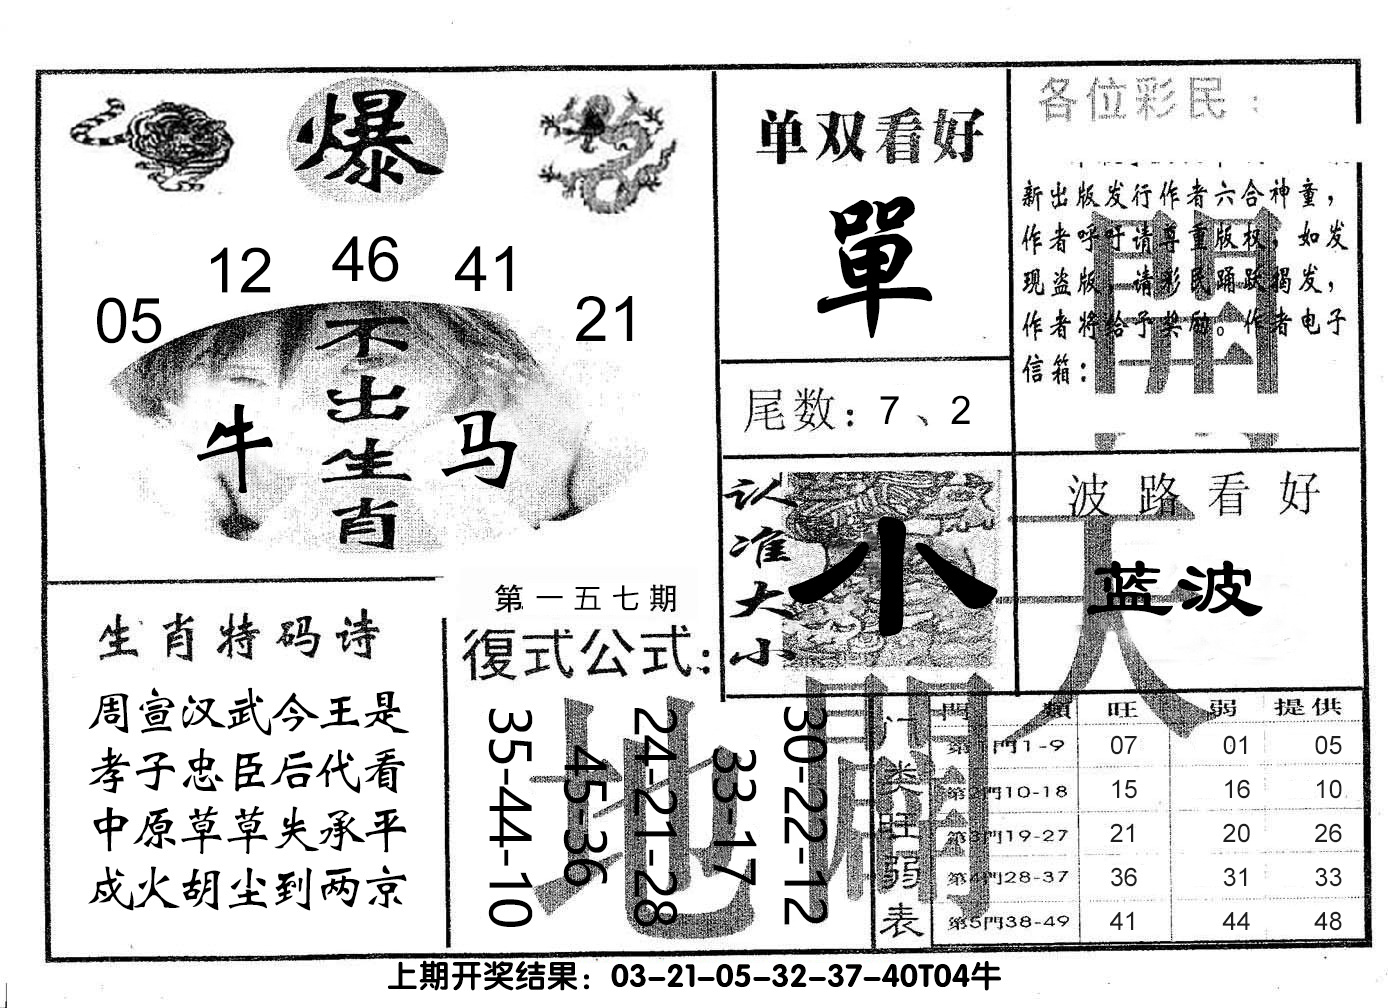 爆
05
12
46
41
21
不出生肖
牛
马
单双看好
單
各位彩民：
新出版发行作者六合神童，
作者呼吁请尊重版权，如发
现盗版，请彩民踊跃揭发，
作者将给予奖励。作者电子
信箱：
尾数：7、2
认准大小
小
波路看好
蓝波
生肖特码诗
周宣汉武今王是
孝子忠臣后代看
中原草草失承平
戍火胡尘到两京
第一五七期
復式公式：
35-44-10
45-36
24-21-28
33-17
30-22-12
天
地
開
門类旺弱表
門 類 旺 弱 提供
第1門1-9 07 01 05
第2門10-18 15 16 10
第3門19-27 21 20 26
第4門28-37 36 31 33
第5門38-49 41 44 48
上期开奖结果：03-21-05-32-37-40T04牛